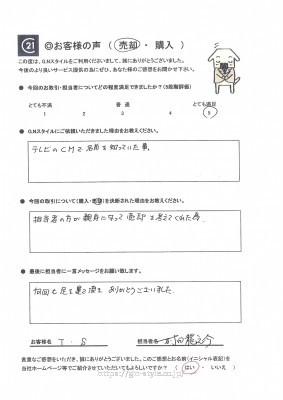 21 ◎お客様の声（ 売却 ・ 購入 ）
この度は、G.Nスタイルをご利用くださいまして、誠にありがとうございました。
今後のより良いサービス提供の為にぜひ、あなた様のご感想をお聞かせ下さい。
● 今回のお取引・担当者についてどの程度満足できましたか？（5段階評価）
とても不満 普 通 とても満足
1 2 3 4 5
● G.Nスタイルにご依頼いただきました理由をお教えください。
テレビのCMで名前を知っていた為
● 今回の取引について（購入・売却）を決断された理由をお教えください。
担当者の方が親身になって売却を考えてくれた為
● 最後に担当者に一言メッセージをお願い致します。
何回も足を運んで頂き ありがとうございました
お客様名 T . S 担当者名
貴重なご感想をいただき、誠にありがとうございました。このご感想とお名前(イニシャル表記)を
当社ホームページ等でご紹介させていただいてもよろしいですか？ （ はい ・ いいえ ）